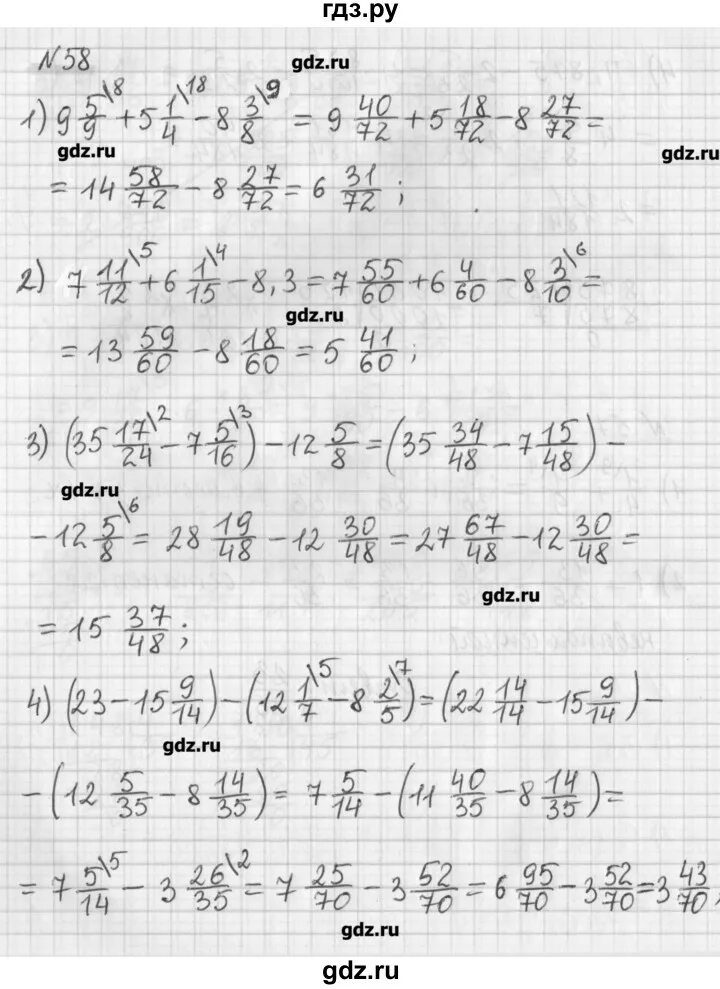 гдз.ру
№58
gdz.ru
1) 9 5/9 \8 + 5 1/4 \18 - 8 3/8 \9 = 9 40/72 + 5 18/72 - 8 27/72 =
gdz.ru
gdz.ru
= 14 58/72 - 8 27/72 = 6 31/72 ;
2) 7 11/12 \5 + 6 1/15 \4 - 8,3 = 7 55/60 + 6 4/60 - 8 3/10 \6 =
gdz.ru
= 13 59/60 - 8 18/60 = 5 41/60 ;
3) (35 17/24 \2 - 7 5/16 \3) - 12 5/8 = (35 34/48 - 7 15/48) -
gdz.ru
- 12 5/8 \6 = 28 19/48 - 12 30/48 = 27 67/48 - 12 30/48 =
gdz.ru
= 15 37/48 ;
4) (23 - 15 9/14) - (12 1/7 \5 - 8 2/5 \7) = (22 14/14 - 15 9/14) -
gdz.ru
- (12 5/35 - 8 14/35) = 7 5/14 - (11 40/35 - 8 14/35) =
= 7 5/14 \5 - 3 26/35 \2 = 7 25/70 - 3 52/70 = 6 95/70 - 3 52/70 = 3 43/70 ;
gdz.ru
gdz.ru